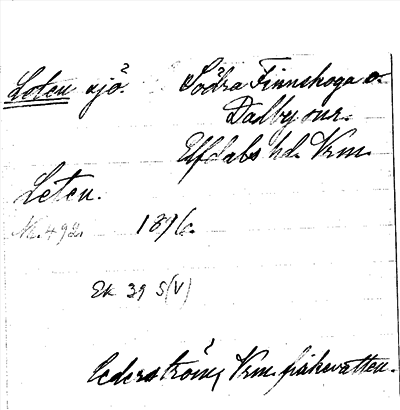 Leten sjö. Södra Finnskoga o.
Dalby snr.
Elfdals hd. Vrm.
Leten.
N. 492. 1896.
Ek 39 S(V)
Cederström, Vrm. fiskevatten.